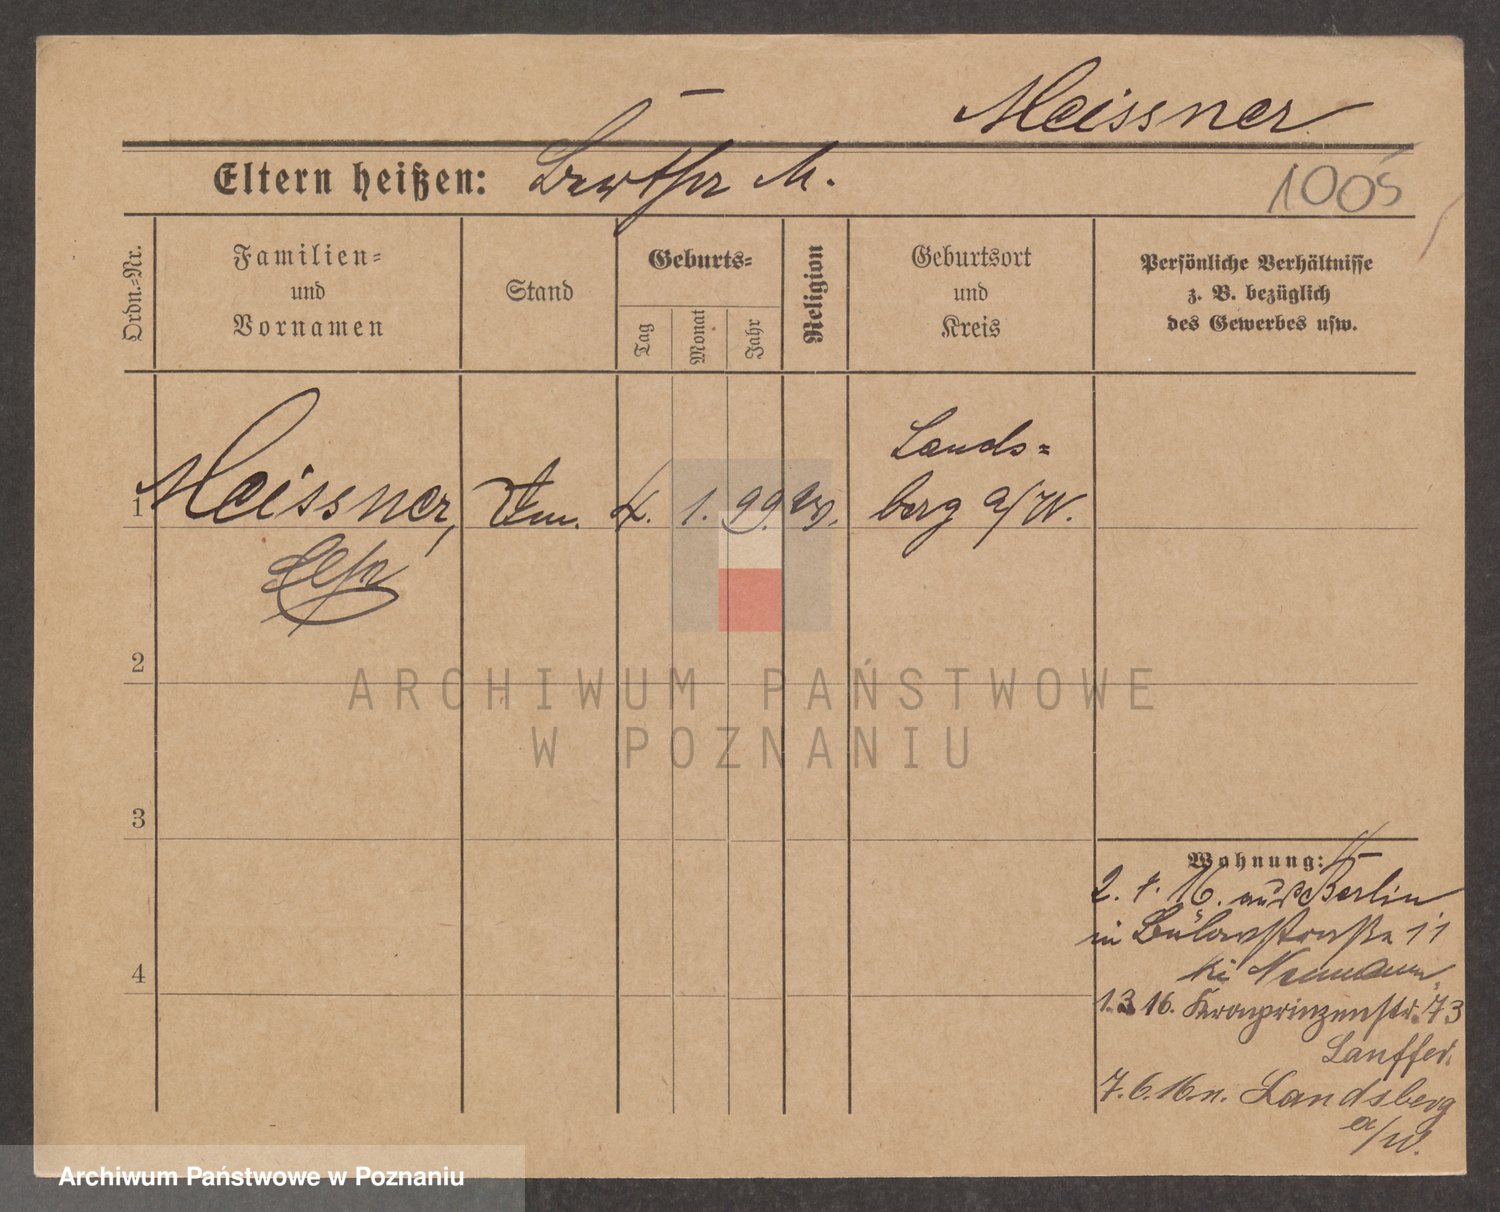 Meissner
Eltern heißen: Bertha M.
1005
Ordn.=Nr.
Familien=
und
Vornamen
Stand
Geburts=
Tag
Monat
Jahr
Religion
Geburtsort
und
Kreis
Persönliche Verhältnisse
z. B. bezüglich
des Gewerbes usw.
Lands=
1 Meissner, 1. 99. ev. berg a/W.
2
ARCHIWUM PAŃSTWOWE
W POZNANIU
3
Wohnung:
2. 16. aus Berlin
in Bülowstraße 11
bei Neumann
1.3.16. Kronprinzenstr. 73
Lauffer.
7.6.16. n. Landsberg
a/W.
4
Archiwum Państwowe w Poznaniu